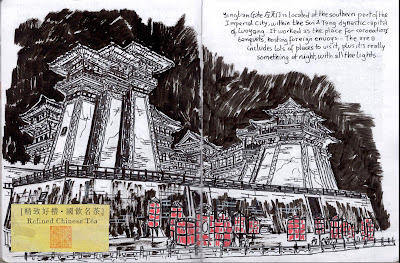 Yingtian Gate 应天门 is located at the southern part of the
Imperial City, within the Sui & Tang dynastic capital
of Luoyang. It worked as the place for coronations,
banquets, hosting foreign envoys... The area
includes lots of places to visit, plus it's really
something at night, with all the lights...
『精致好禮·國飲名茶』
Refined Chinese Tea